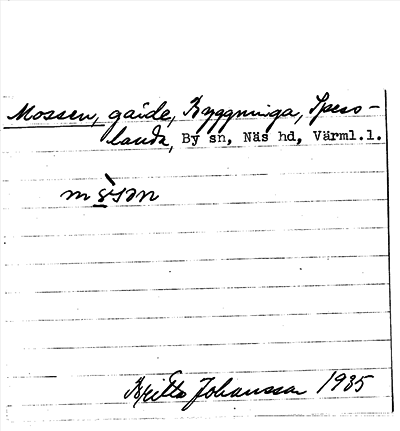 Mossen, gärde, Byggninga, Speso-
landa, By sn, Näs hd, Värml.l.
Britta Johansson 1935